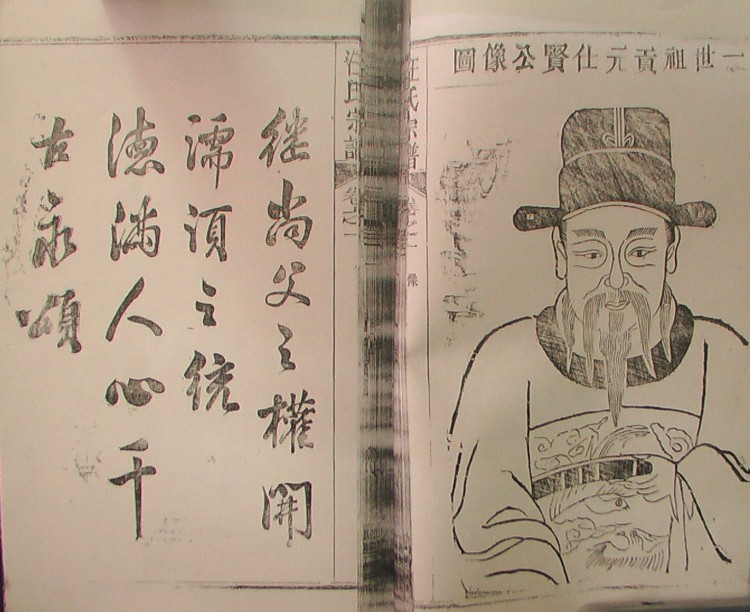 一世祖貢元仕賢公像圖
汪氏宗譜
像
汪氏宗譜
继尚父之權開
濡須之統
德滿人心千
古永頌